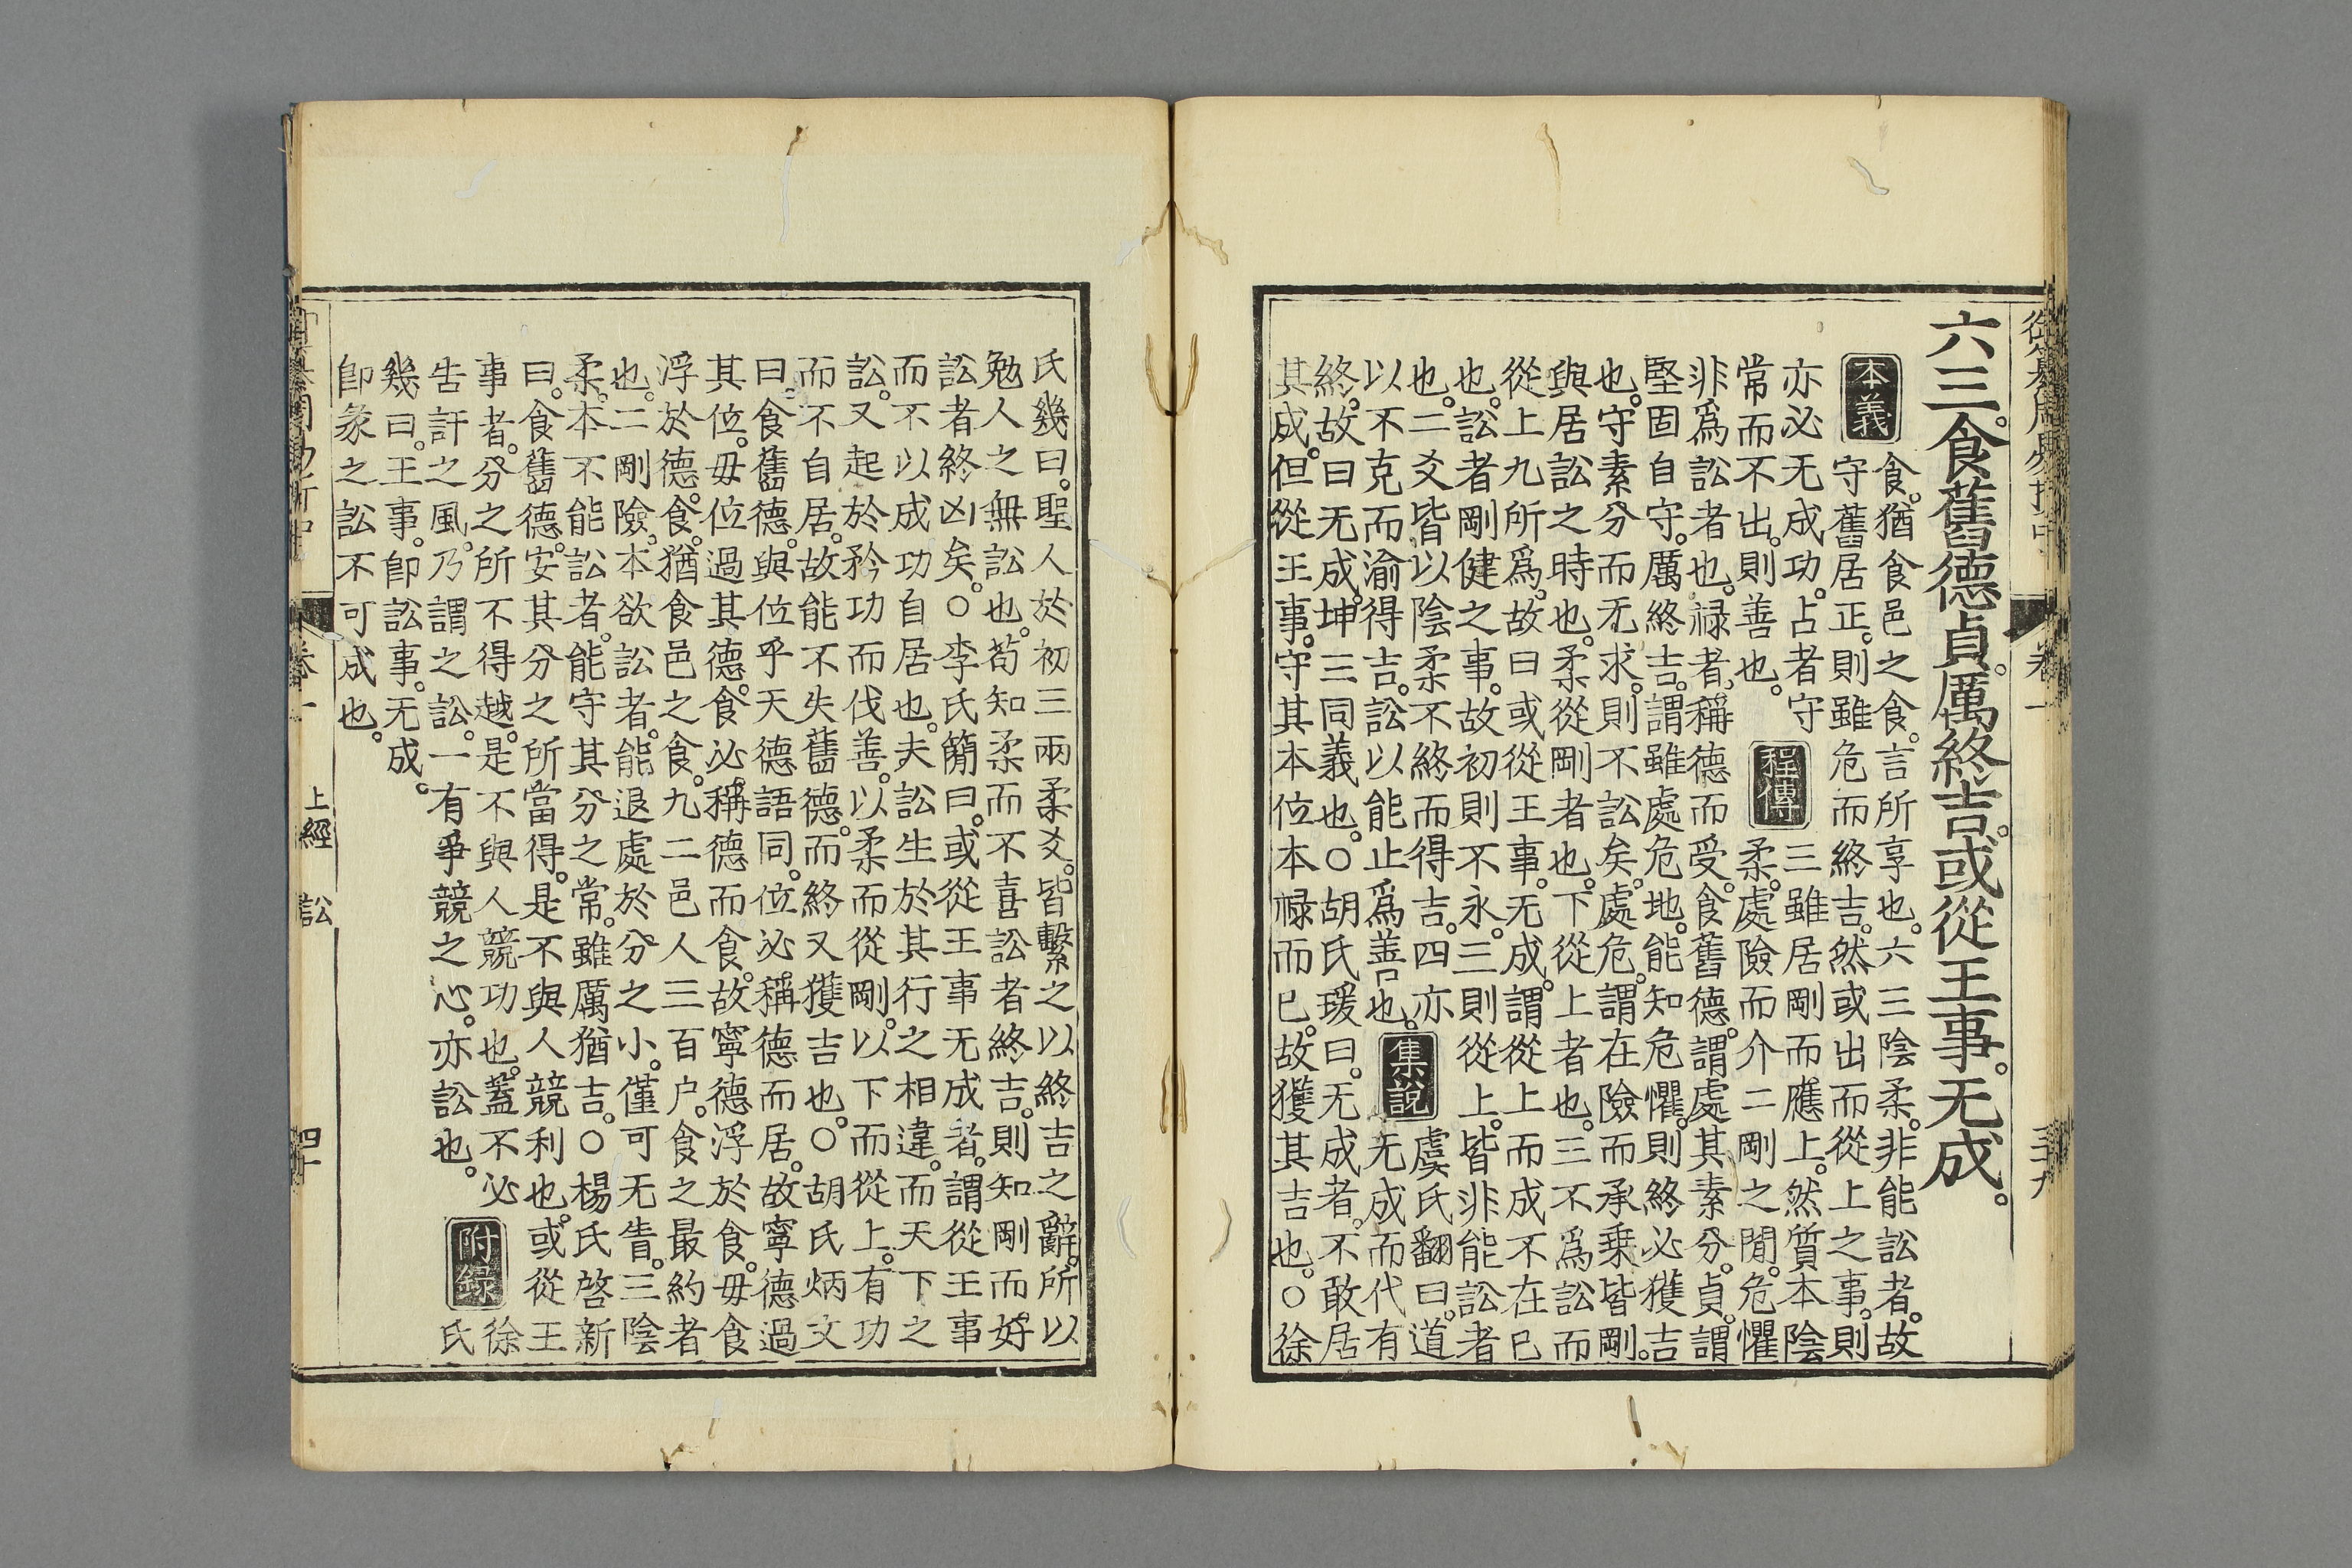 御纂周易折中 卷一 三十九
六三。食舊德。貞厲。終吉。或從王事。无成。
本義
食。猶食邑之食。言所享也。六三陰柔。非能訟者。故
守舊居正。則雖危而終吉。然或出而從上之事。則
亦必无成功。占者守
常而不出。則善也。
程傳
三雖居剛而應上。然質本陰
柔。處險而介二剛之閒。危懼
非爲訟者也。祿者。稱德而受。食舊德。謂處其素分。貞。謂
堅固自守。厲終吉。謂雖處危地。能知危懼。則終必獲吉
也。守素分而无求。則不訟矣。處危。謂在險而承乗皆剛。
與居訟之時也。柔從剛者也。下從上者也。三不爲訟而
從上九所爲。故曰或從王事。无成。謂從上而成不在已
也。訟者剛健之事。故初則不永。三則從上。皆非能訟者
也。二爻皆以陰柔不終而得吉。四亦
以不克而渝得吉。訟以能止爲善也。
集說
虞氏翻曰。道
无成而代有
終。故曰无成。坤三同義也。○胡氏瑗曰。无成者。不敢居
其成。但從王事。守其本位本祿而已。故獲其吉也。○徐
氏幾曰。聖人於初三兩柔爻。皆繫之以終吉之辭。所以
勉人之無訟也。苟知柔而不喜訟者終吉。則知剛而好
訟者終凶矣。○李氏簡曰。或從王事无成者。謂從王事
而不以成功自居也。夫訟生於其行之相違。而天下之
訟。又起於矜功而伐善。以柔而從剛。以下而從上。有功
而不自居。故能不失舊德。而終又獲吉也。○胡氏炳文
曰。食舊德。與位乎天德語同。位必稱德而居。故寧德過
其位。毋位過其德。食必稱德而食。故寧德浮於食。毋食
浮於德。食。猶食邑之食。九二邑人三百户。食之最約者
也。二剛險。本欲訟者。能退處於分之小。僅可无眚。三陰
柔。本不能訟者。能守其分之常。雖厲猶吉。○楊氏啓新
曰。食舊德。安其分之所當得。是不與人競利也。或從王
事者。分之所不得越。是不與人競功也。蓋不必
告訐之風。乃謂之訟。一有爭競之心。亦訟也。
附録
徐
氏
幾曰。王事。卽訟事。无成。
卽彖之訟不可成也。
卷一 上經 訟 四十